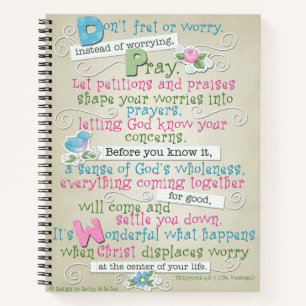 Don't fret or worry.
instead of worrying,
Pray.
Let petitions and praises
shape your worries into
prayers,
letting God know your
concerns.
Before you know it,
a sense of God's wholeness,
everything coming together
for good,
will come and
settle you down.
It's Wonderful what happens
when Christ displaces worry
at the center of your life.
Philippians 4:6-7 (The Message)
© Design by Becky